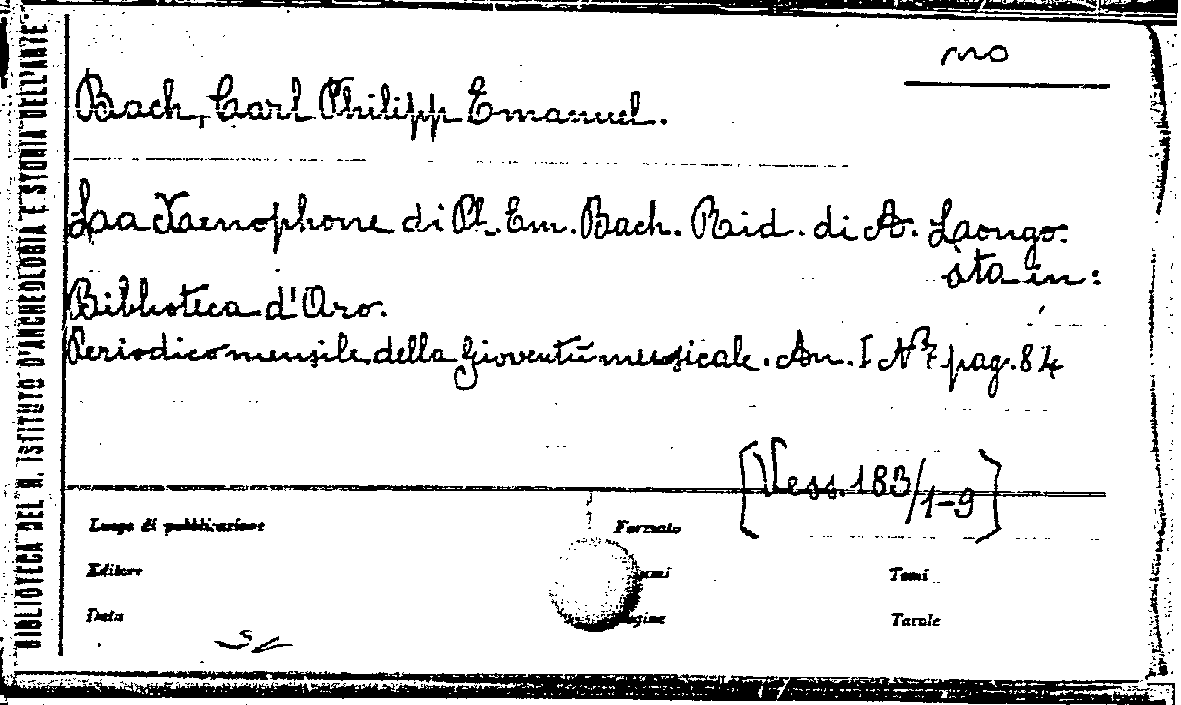 BIBLIOTECA DEL R. ISTITUTO D'ARCHEOLOGIA E STORIA DELL'ARTE
mo
Bach, Carl Philipp Emanuel.
La Xenophone di Ph. Em. Bach. Rid. di A. Longo.
sta in:
Biblioteca d'Oro.
Periodico mensile della Gioventù musicale. An. I N° 7 pag. 84
[Vess. 183/1-9]
Luogo di pubblicazione
Formato
Editore
Tomi
Data
Tavole